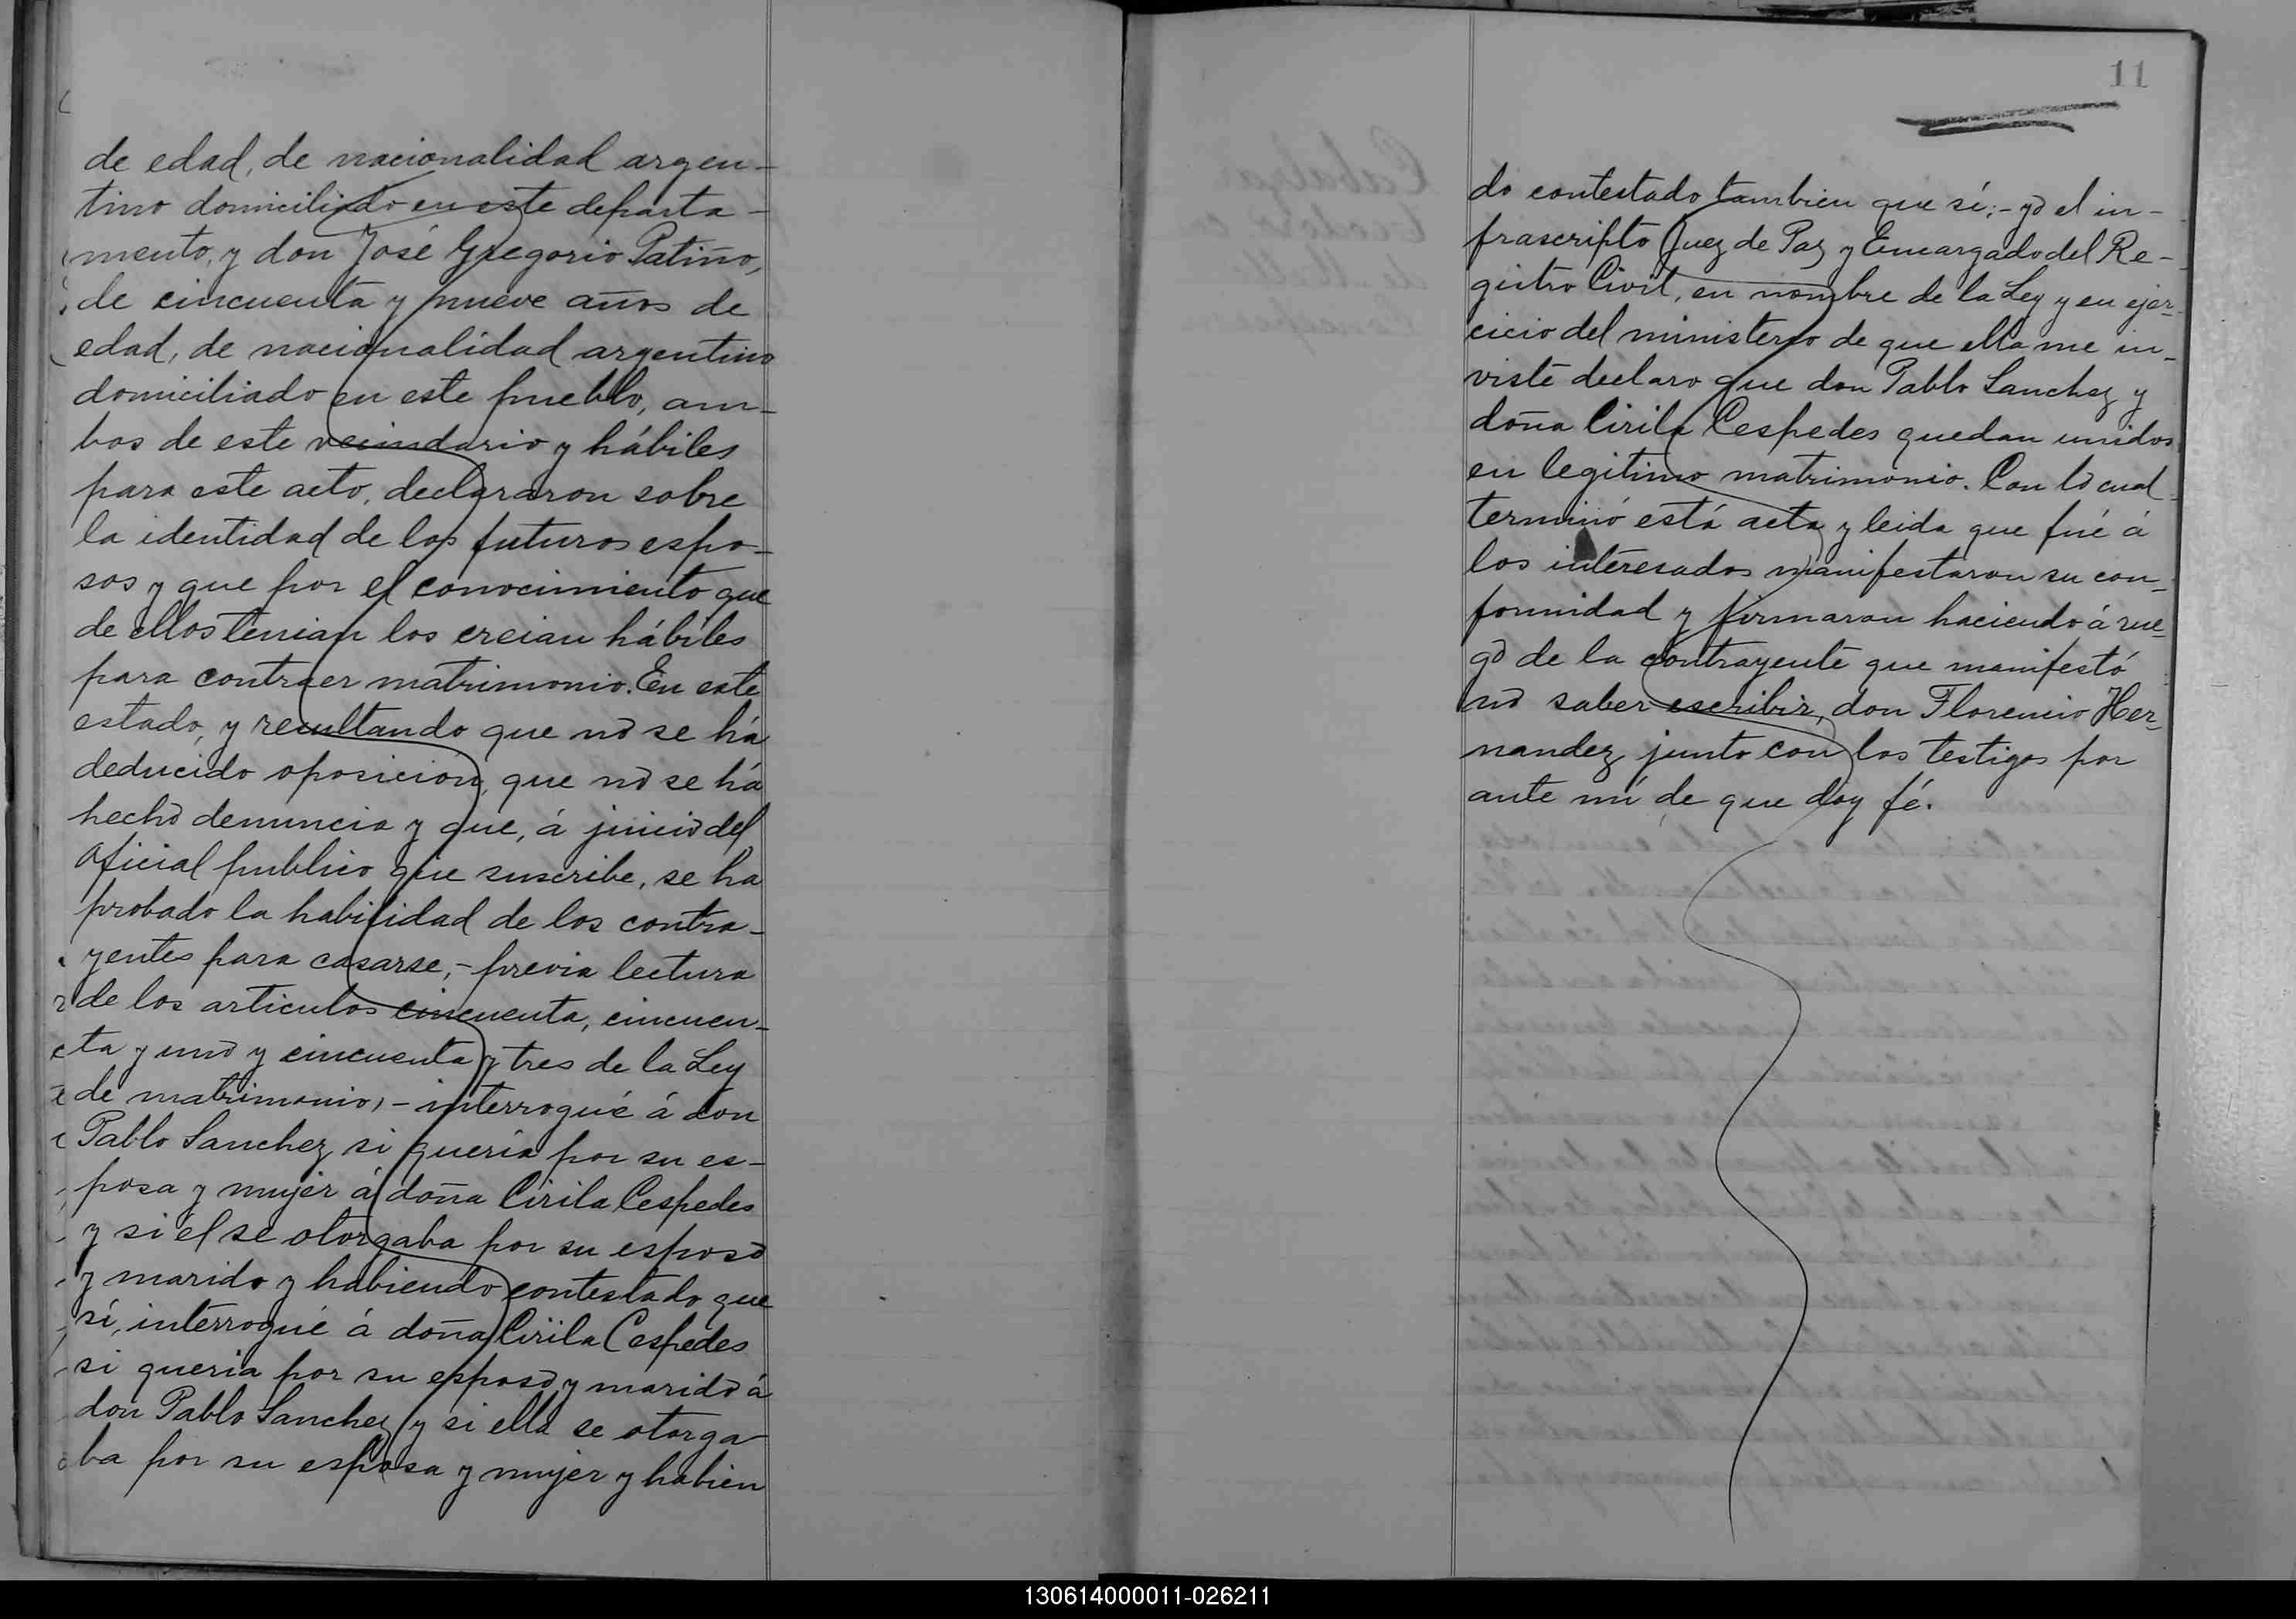 de edad, de nacionalidad argen-
tino domiciliado en este departa-
mento, y don José Gregorio Patiño,
de cincuenta y nueve años de
edad, de nacionalidad argentino
domiciliado en este pueblo, am-
bos de este vecindario y hábiles
para este acto, declararon sobre
la identidad de los futuros espo-
sos y que por el conocimiento que
de ellos tenian los creian hábiles
para contraer matrimonio. En este
estado, y resultando que nó se há
deducido oposición, que nó se há
hecho denuncia y que, á juicio del
oficial publico que suscribe, se ha
probado la habilidad de los contra-
yentes para casarse,- previa lectura
de los articulos cincuenta, cincuen-
ta y uno y cincuenta y tres de la Ley
de matrimonio,- interrogué á don
Pablo Sanchez si queria por su es-
posa y mujer á doña Cirila Cespedes
y si él se otorgaba por su esposo
y marido y habiendo contestado que
sí, interrogué á doña Cirila Cespedes
si queria por su esposo y marido á
don Pablo Sanchez y si ella se otorga
ba por su esposa y mujer y habien
11
do contestado tambien que sí;- yo el in-
frascripto Juez de Paz y Encargado del Re-
gistro Civil, en nombre de la Ley y en ejer-
cicio del ministerio de que ella me in-
viste declaro que don Pablo Sanchez y
doña Cirila Cespedes quedan unidos
en legitimo matrimonio. Con lo cual
terminó está acta y leida que fué á
los interesados manifestaron su con-
formidad y firmaron haciendo á rue-
go de la contrayente que manifestó
nó saber escribir, don Florencio Her-
nandez junto con los testigos por
ante mí de que doy fé.
130614000011-026211